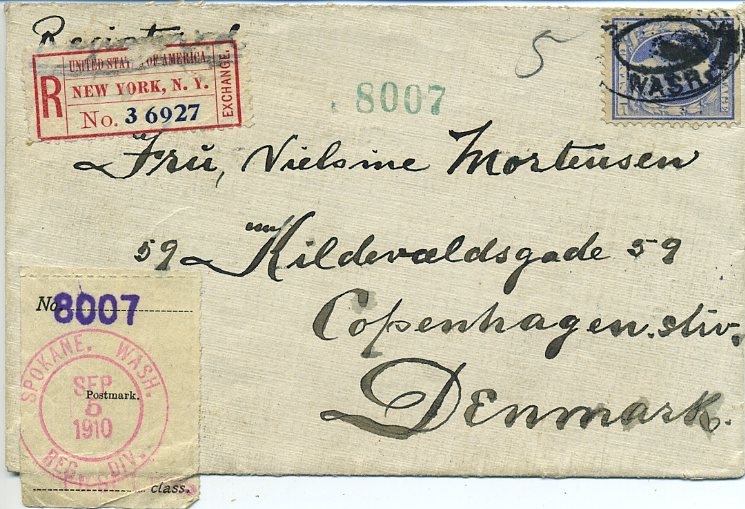 Registered
5
R
UNITED STAT OF AMERICA
NEW YORK, N. Y.
No. 36927
EXCHANGE
8007
WASH.
Fru, Nielsine Mortensen
59 Kildevældsgade 59
Copenhagen.
Denmark.
No. 8007
SPOKANE. WASH.
SEP
Postmark.
1910
REG. DIV.
class.